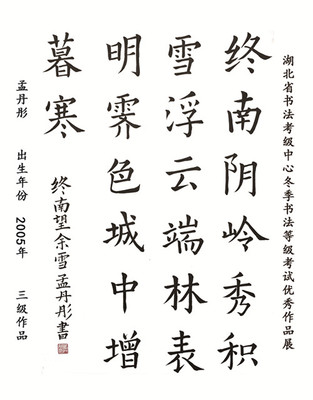 湖北省书法考级中心冬季书法等级考试优秀作品展
终南阴岭秀积
雪浮云端林表
明霁色城中增
暮寒
终南望余雪孟丹彤書
孟丹彤 出生年份 2005年 三级作品